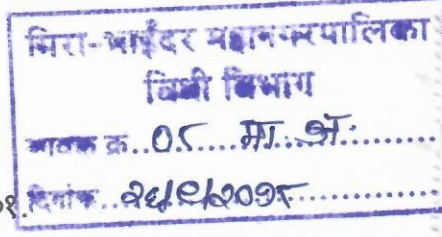 मिरा-भाईंदर महानगरपालिका
विधी विभाग
जावक क्र..०८ मा. अ.
दिनांक..२६/९/२०१८